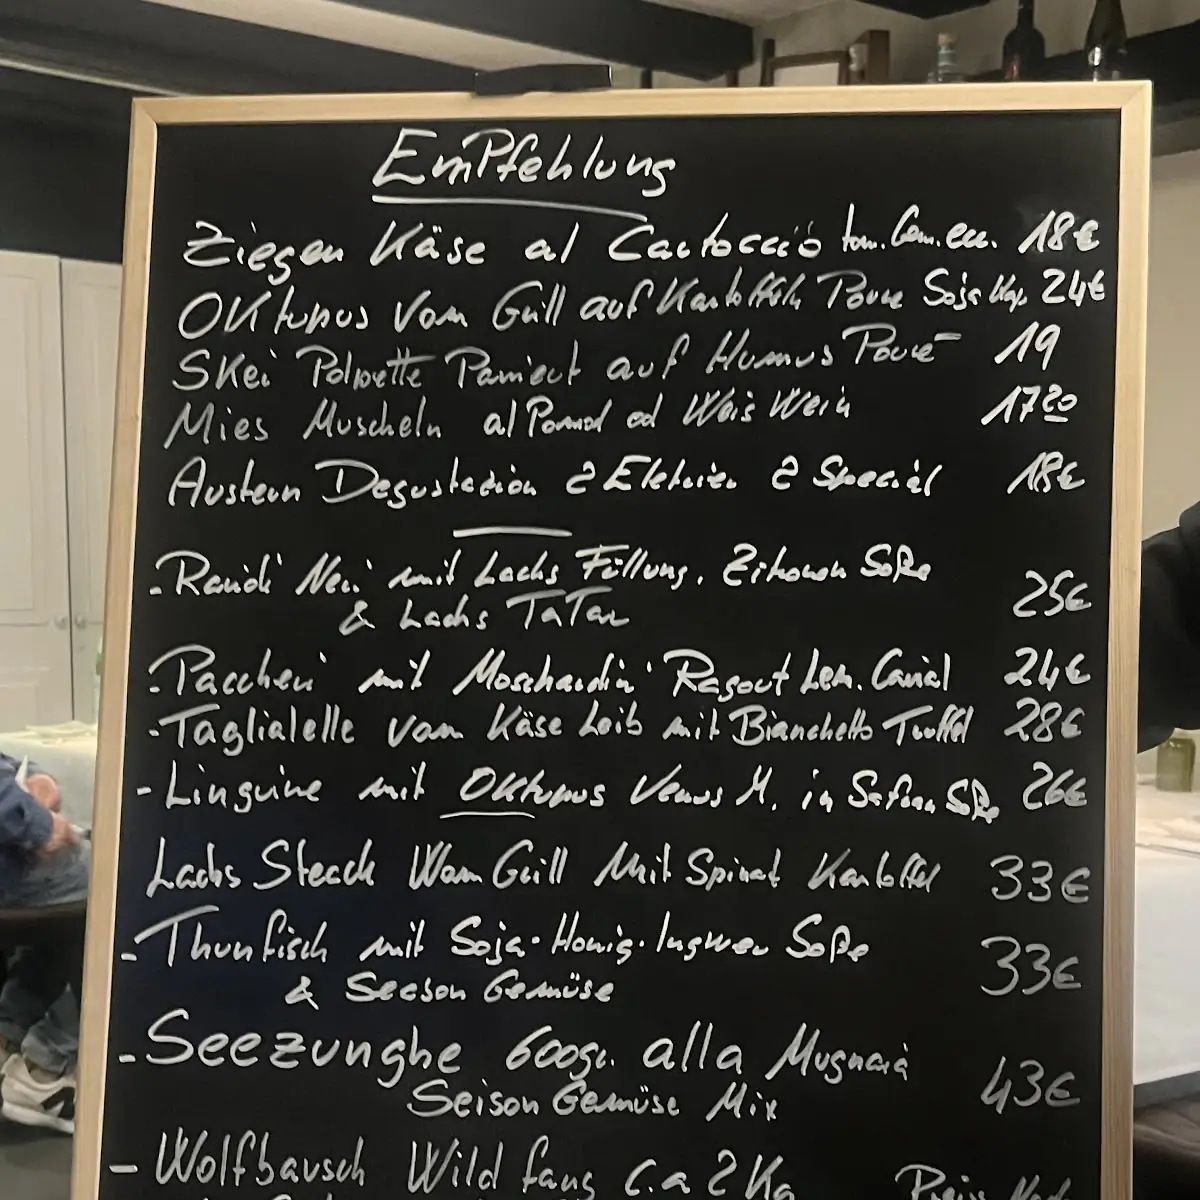 EmPfehlung
Ziegen Käse al Cartoccio tom. Cam. ecc. 18€
OKtupus vom Grill auf Kartoffeln Pouree Soja Kap. 24€
SKei Polpette Paniert auf Humus Pouree 19
Mies Muscheln al Pomod od Weis Wein 17 20
Austern Degustation 2 2 Special 18€
- Ravioli Neri mit Lachs Füllung, Zitronen Soße 25€
& Lachs TaTar
- Paccheri mit Moschardini Ragout 24€
- Tagliatelle vom Käse Leib mit Bianchetto Trüffel 28€
- Linguine mit OKtupus Venus M. in Safran Soße 26€
Lachs Steack Vom Grill Mit Spinat Kartoffel 33€
- Thunfisch mit Soja-Honig-Ingwer Soße 33€
& Seeson Gemüse
- Seezunghe 600gr. alla Mugnaia 43€
Seison Gemüse Mix
- Wolfbarsch Wild fang C.a 2 Kg Preis